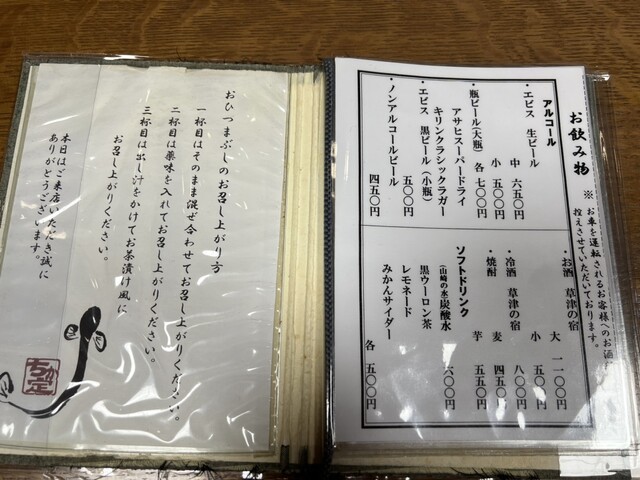 お飲み物
※お車を運転されるお客様へのお酒
控えさせていただいております。
アルコール
・エビス 生ビール
中 六五〇円
小 五〇〇円
・瓶ビール(大瓶) 各 七〇〇円
アサヒスーパードライ
キリンクラシックラガー
・エビス 黒ビール(小瓶)
五〇〇円
・ノンアルコールビール
四五〇円
・お酒 草津の宿
大 一一〇〇円
小 五〇〇円
・冷酒 草津の宿
八〇〇円
・焼酎 麦 四五〇円
芋 五五〇円
ソフトドリンク
(山崎の水)炭酸水
六〇〇円
黒ウーロン茶
レモネード
みかんサイダー
各 五〇〇円
おひつまぶしのお召し上がり方
一杯目はそのまま混ぜ合わせてお召し上がりください。
二杯目は薬味を入れてお召し上がりください。
三杯目は出し汁をかけてお茶漬け風に
お召し上がりください。
本日はご来店いただき誠に
ありがとうございます。